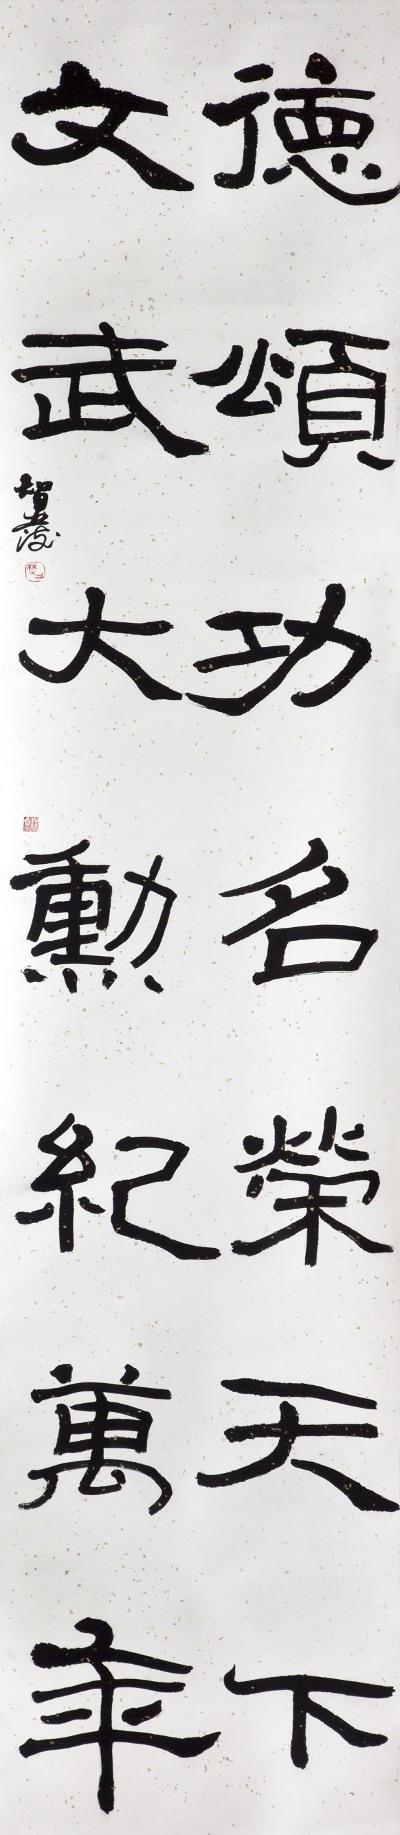 德頌功名榮天下
文武大勳紀萬年